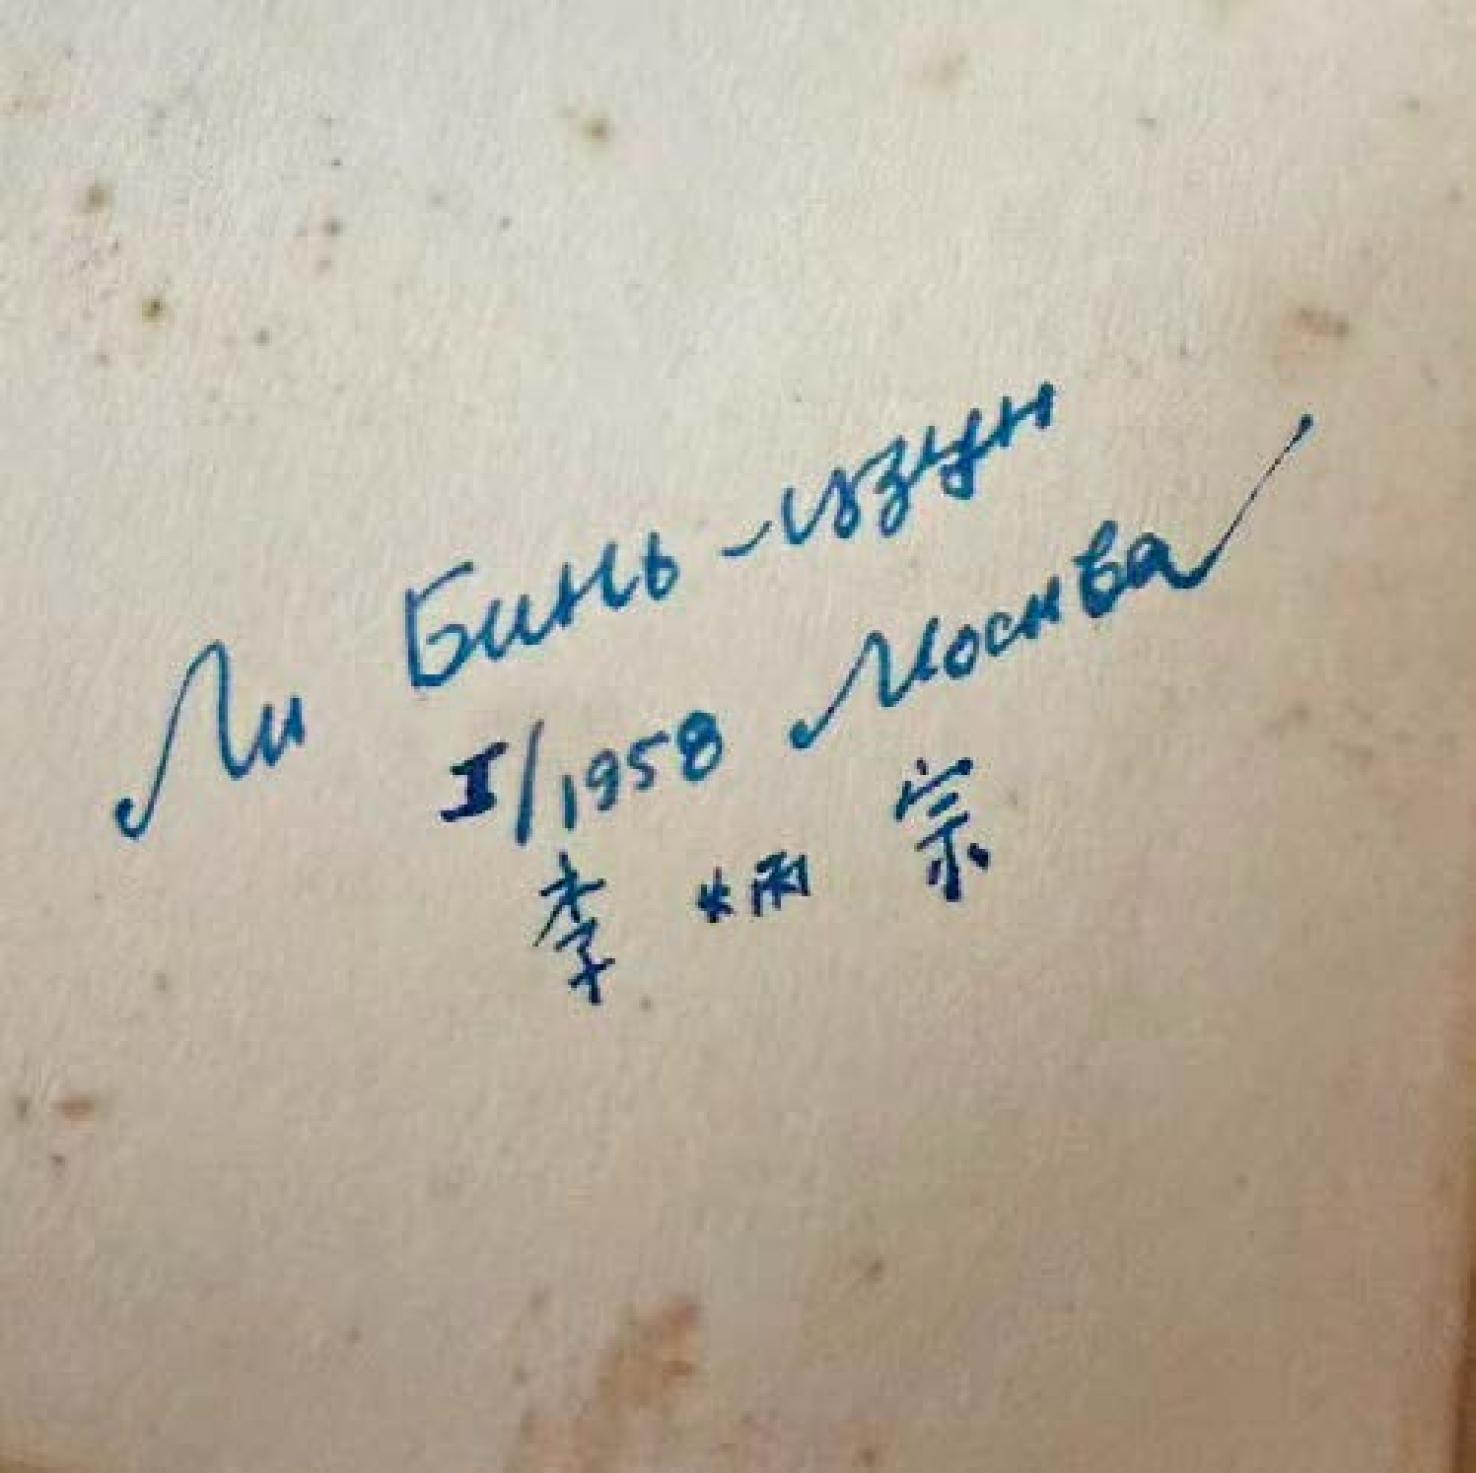 Ли Бинь-цзун
I/1958 Москва
李炳宗